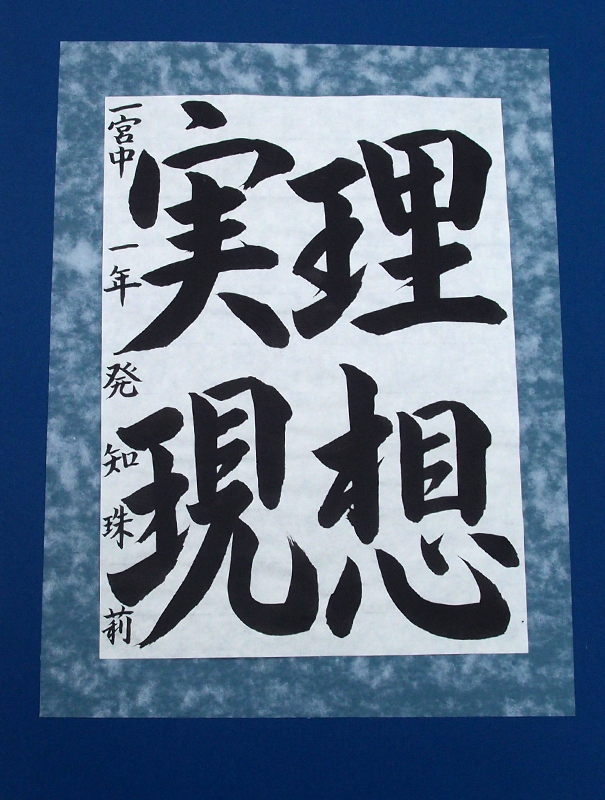 理想
実現
一宮中 一年 発知珠莉